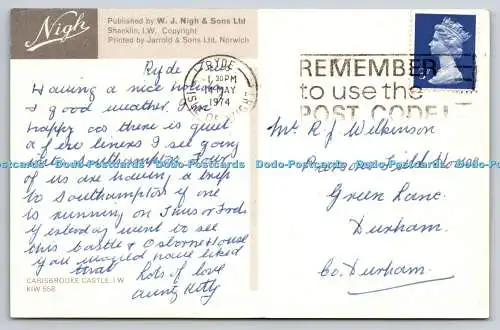 Nigh
Published by W. J. Nigh & Sons Ltd
Shanklin, I.W. Copyright
Printed by Jarrold & Sons Ltd, Norwich
RYDE
1.30PM
14 MAY
1974
ISLE OF WIGHT
REMEMBER
to use the
POST CODE!
Ryde
Having a nice holiday
& good weather I'm
happy as there is quiet
a few liners I see going
into Southampton four
of us are having a trip
to Southampton if one
is running on Thurs or Frid
Yesterday went to see
this Castle & Osborne House
you would have liked
that
Lots of love
Aunty Hetty
Mr R J Wilkinson
House
Green Lane
Durham.
Co. Durham.
CARISBROOKE CASTLE, I.W.
KIW 558
Do-Postcards Do-Postcards Do-Postcards Do-Postcards Do-Postcards Do-Postcards